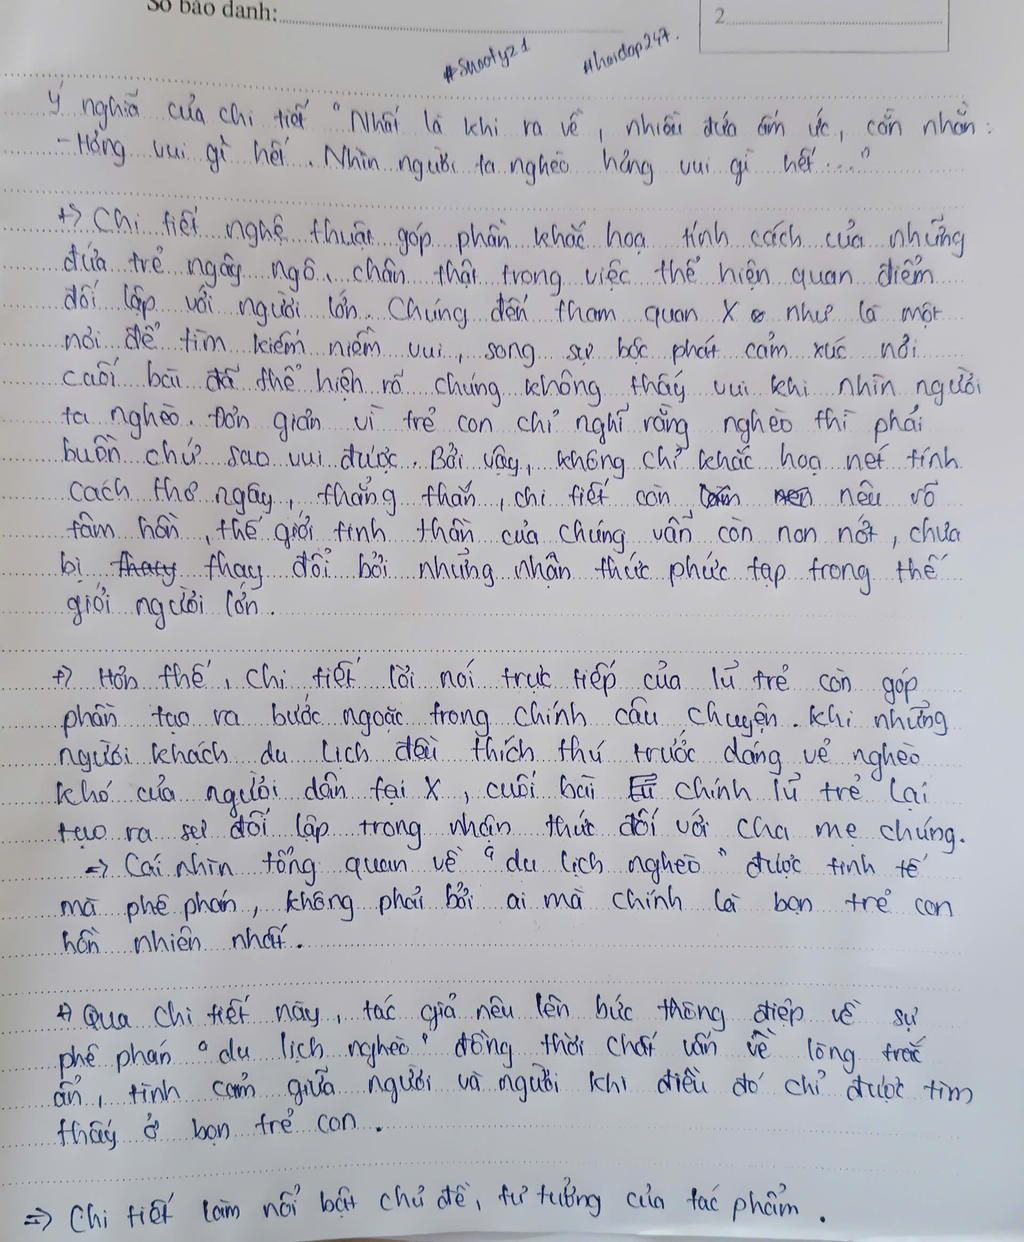 Số báo danh:
2
#Snooty21
#hoidap247.
Ý nghĩa của chi tiết "Nhất là khi ra về, nhiều đứa ấm ức, cằn nhằn:
- Hỏng vui gì hết. Nhìn người ta nghèo hỏng vui gì hết..."
+> Chi tiết nghệ thuật góp phần khắc hoạ tính cách của những
đứa trẻ ngây ngô, chân thật trong việc thể hiện quan điểm
đối lập với người lớn. Chúng đến tham quan X như là một
nơi để tìm kiếm niềm vui, song sự bộc phát cảm xúc nơi
cuối bài đã thể hiện rõ chúng không thấy vui khi nhìn người
ta nghèo. Đơn giản vì trẻ con chỉ nghĩ rằng nghèo thì phải
buồn chứ sao vui được. Bởi vậy, không chỉ khắc hoạ nét tính
cách thơ ngây, thẳng thắn, chi tiết còn nêu rõ
tâm hồn, thế giới tinh thần của chúng vẫn còn non nớt, chưa
bị thay đổi bởi những nhận thức phức tạp trong thế
giới người lớn.
+> Hơn thế, chi tiết lời nói trực tiếp của lũ trẻ còn góp
phần tạo ra bước ngoặc trong chính câu chuyện. Khi những
người khách du lịch đều thích thú trước dáng vẻ nghèo
khó của người dân tại X, cuối bài chính lũ trẻ lại
tạo ra sự đối lập trong nhận thức đối với cha mẹ chúng.
=> Cái nhìn tổng quan về "du lịch nghèo" được tinh tế
mà phê phán, không phải bởi ai mà chính là bọn trẻ con
hồn nhiên nhất.
+> Qua chi tiết này, tác giả nêu lên bức thông điệp về sự
phê phán "du lịch nghèo" đồng thời chất vấn về lòng trắc
ẩn, tình cảm giữa người và người khi điều đó chỉ được tìm
thấy ở bọn trẻ con.
=> Chi tiết làm nổi bật chủ đề, tư tưởng của tác phẩm.